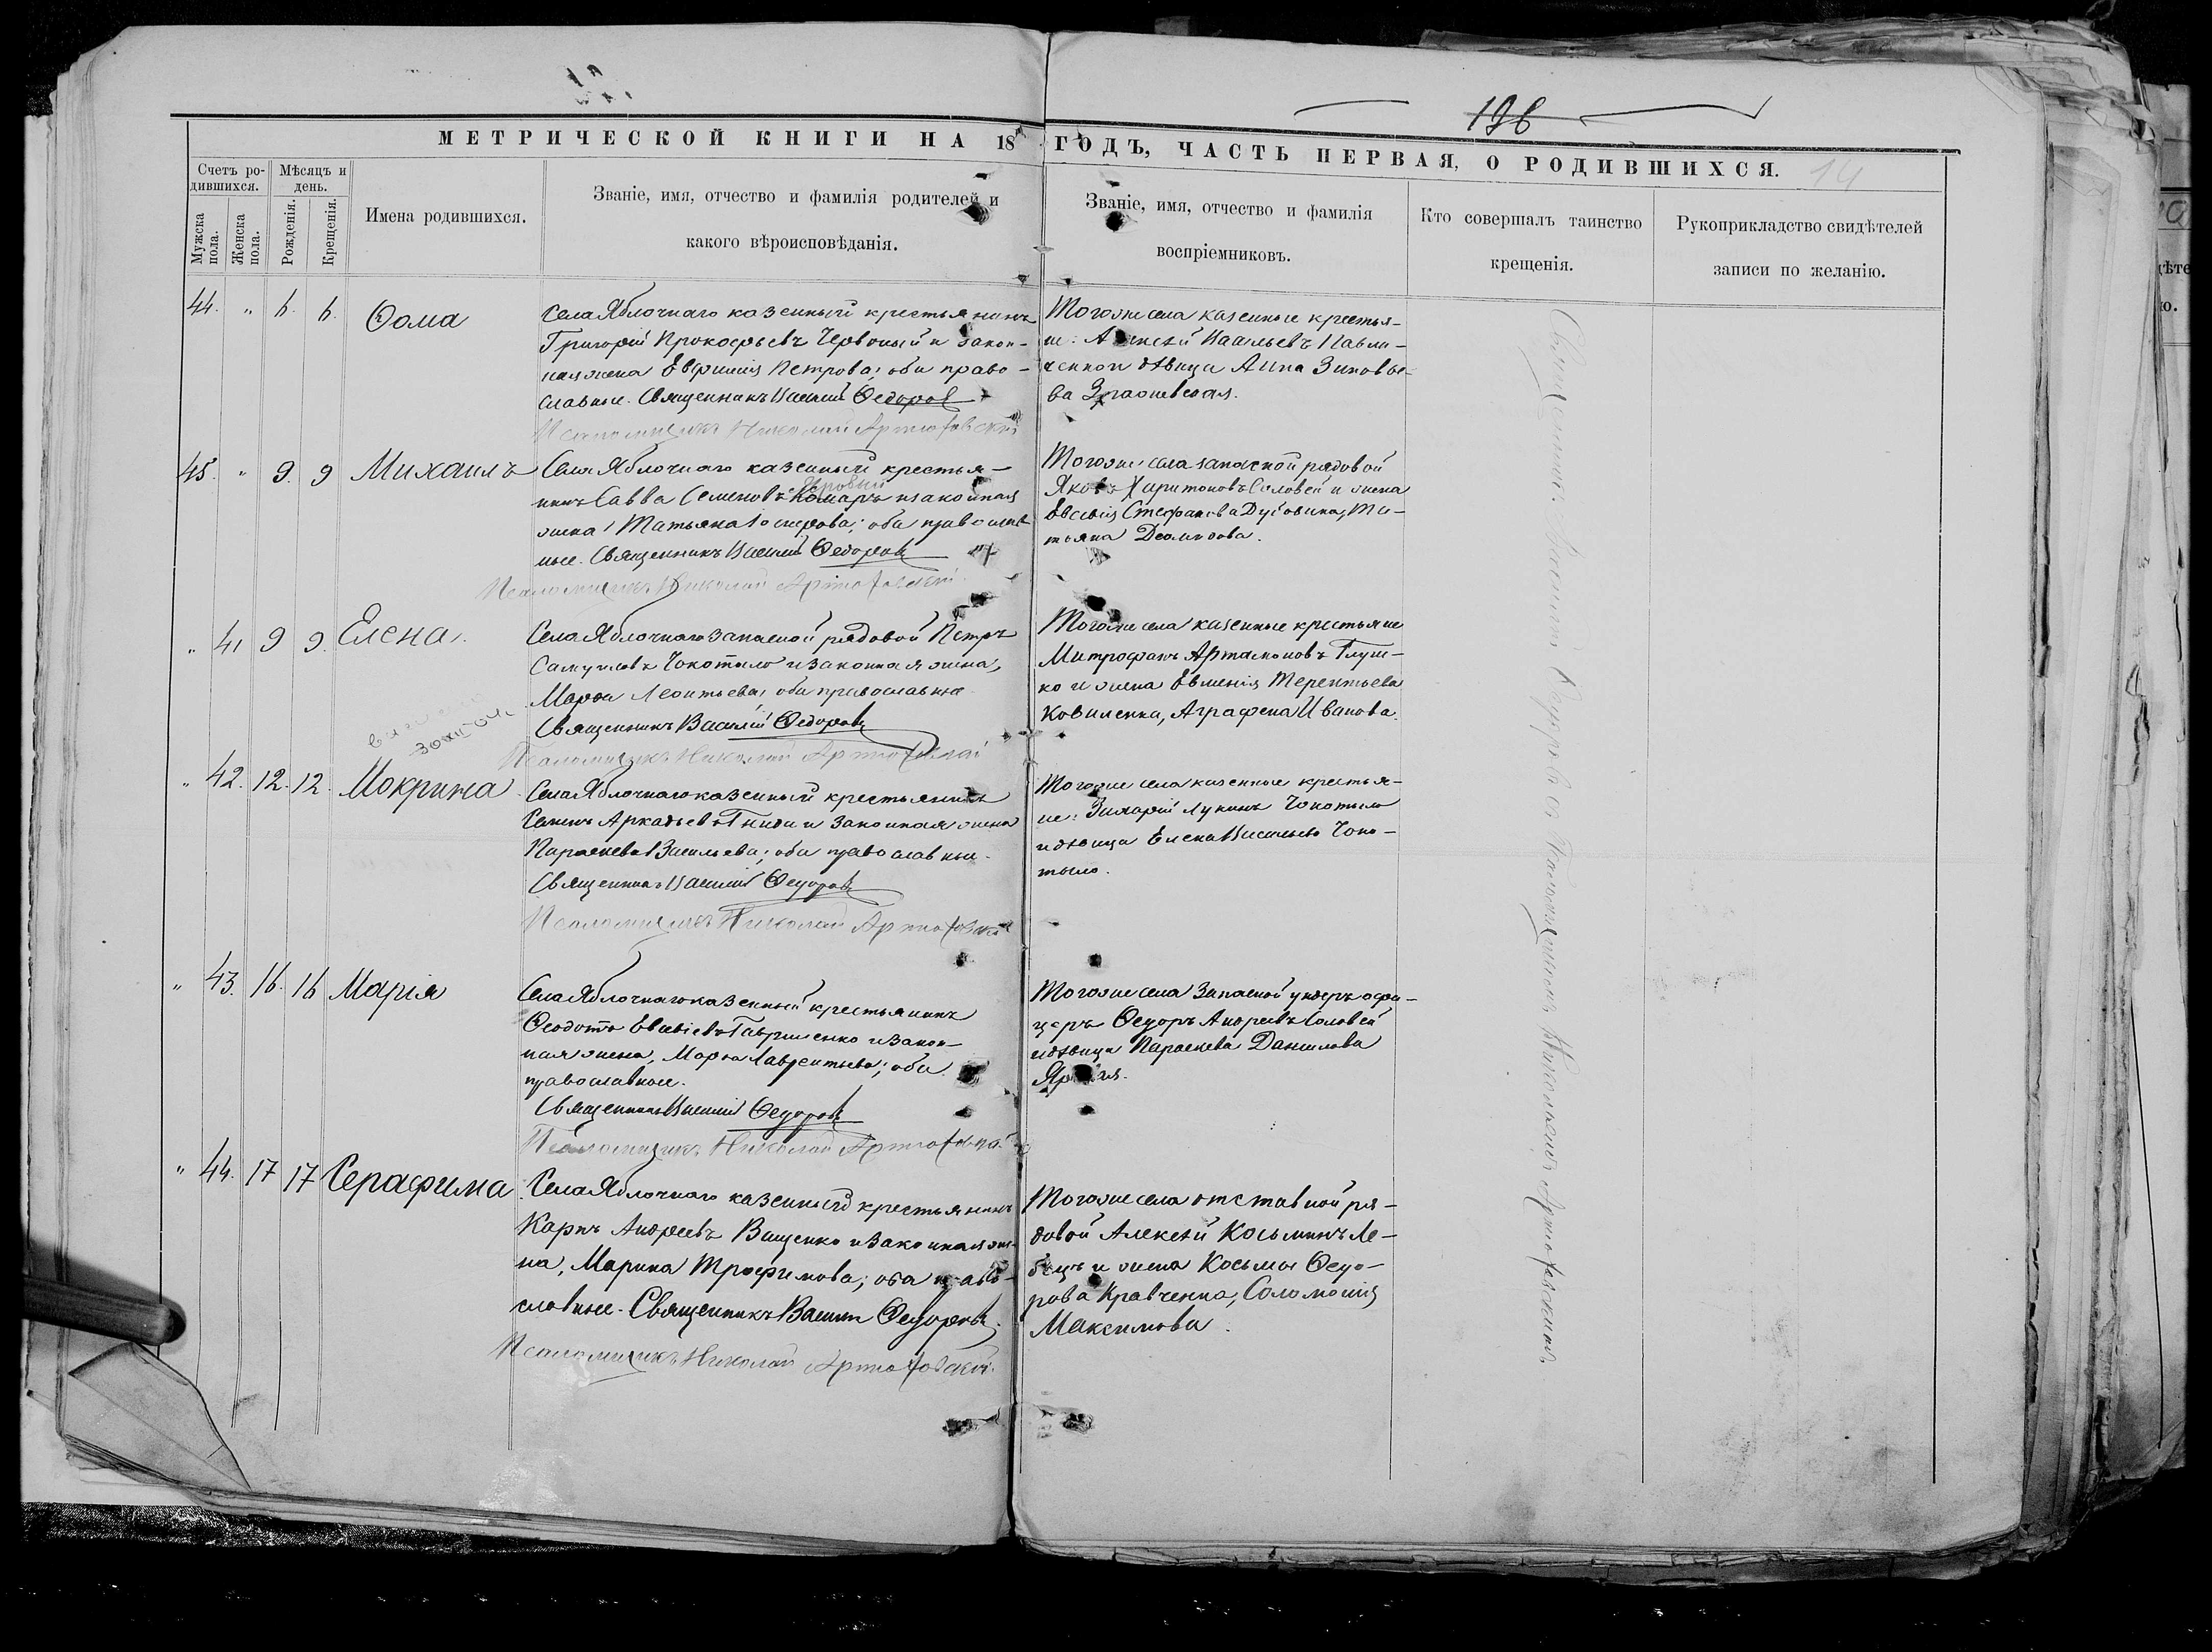 196
МЕТРИЧЕСКОЙ КНИГИ НА 18 ГОДЪ, ЧАСТЬ ПЕРВАЯ, О РОДИВШИХСЯ.
14
Счетъ ро-
дившихся.
Мѣсяцъ и
день.
Мужска
пола.
Женска
пола.
Рожденія.
Крещенія.
Имена родившихся.
Званіе, имя, отчество и фамилія родителей и
какого вѣроисповѣданія.
Званіе, имя, отчество и фамилія
воспріемниковъ.
Кто совершалъ таинство
крещенія.
Рукоприкладство свидѣтелей
записи по желанію.
44. " 6. 6. Ѳома
Села Яблочнаго казенный крестьянинъ
Григорій Прокофьевъ Червоный и закон-
ная жена Евфимія Петрова; оба право-
славные. Священникъ Василій Ѳедоровъ
Псаломщикъ Николай
Тогоже села казенные крестья-
не: Алексѣй Васильевъ Павли-
ченко и дѣвица Анна Зиновье-
ва
45. " 9. 9 Михаилъ
Села Яблочнаго казенный крестья-
Яровый
нинъ Савва Семеновъ Комаръ и законная
жена Татьяна оба православ-
ные. Священникъ Василій Ѳедоровъ
Псаломщикъ Николай
Тогоже села запасной рядовой
Яковъ Харитоновъ Соловей и жена
Евсевія Стефанова Та-
тьяна Деомидова.
" 41 9 9. Елена
Села Яблочнаго запасной рядовой Петръ
Самуиловъ Чокотыло и законная жена,
Марѳа Леонтьева; оба православные
Священникъ Василій Ѳедоровъ
Псаломщикъ Николай
Тогоже села казенные крестьяне
Митрофанъ Артамоновъ Глуш-
ко и жена Евменія Терентьева
Коваленка, Аграфена Иванова.
" 42. 12. 12. Мокрина
Села Яблочнаго казенный крестьянинъ
Аркадьевъ Гнида и законная жена
Параскева Васильева; оба православные.
Священникъ Василій Ѳедоровъ
Псаломщикъ Николай
Тогоже села казенные крестья-
не: Лукинъ Чокотыло
и дѣвица Елена Васильева Чоко-
тыло.
" 43. 16. 16 Марія
Села Яблочнаго казенный крестьянинъ
Ѳеодотъ Евсевіевъ Гавриленко и закон-
ная жена, Марѳа Лаврентьева; оба
православные.
Священникъ Василій Ѳедоровъ
Псаломщикъ Николай
Тогоже села Запасной ундеръ офи-
церъ Ѳедоръ Андреевъ Соловей
и дѣвица Параскева Данилова
" 44. 17 17 Серафима
Села Яблочнаго казенный крестьянинъ
Карпъ Андреевъ Ващенко и законная же-
на, Марина Трофимова; оба право-
славные. Священникъ Василій Ѳедоровъ.
Псаломщикъ Николай
Тогоже села отставной ря-
довой Алексѣй Косьминъ Ле-
бедь и жена Косьмы Ѳедо-
рова Кравченка, Соломонія
Максимова.
Священникъ Василій Ѳедоровъ съ Псаломщикомъ Николаемъ